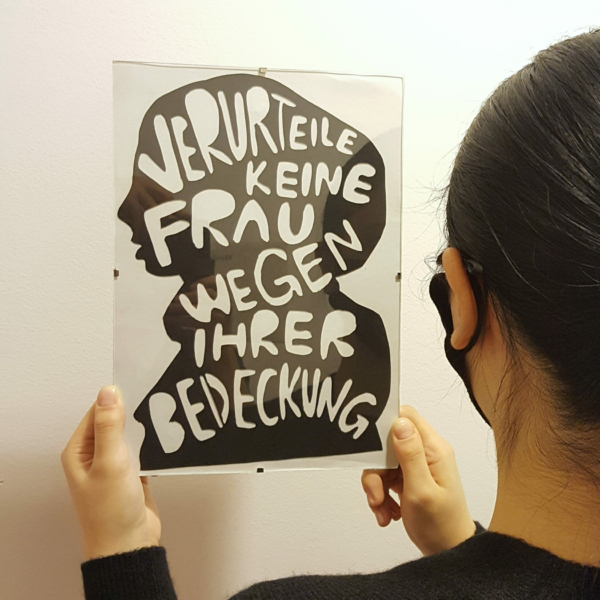 VERURTEILE
KEINE
FRAU
WEGEN
IHRER
BEDECKUNG